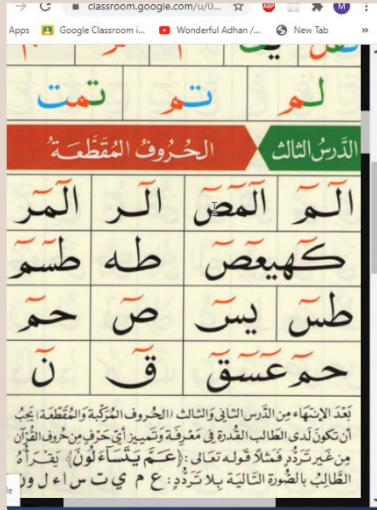 classroom.google.com/u/0...
Apps Google Classroom i... Wonderful Adhan /... New Tab »
لم تم تمت
الدَّرسُ الثالث الحُروفُ المُقَطَّعَةُ
الٓـمٓ الٓمٓصٓ الٓـر الٓمٓر
كٓهيعٓصٓ طه طسٓمٓ
طسٓ يسٓ صٓ حمٓ
حمٓ عٓسٓقٓ قٓ نٓ
بَعْدَ الإنتهَاء مِنَ الدَّرسِ الثاني وَالثالث (الحُروف المُرَكَّبة وَالمُقَطَّعَة) يَجِبُ
أن تكونَ لَدى الطالب القُدرة في مَعرِفَة وَتَمييز أيّ حَرفٍ مِن حُروف القُرآن
مِن غَير تَردُّد فَمَثلاً قَوله تعَالى : ﴿عَمَّ يَتَسَآءَلُونَ﴾ يَقْرَأهُ
الطَّالِبُ بالصُّورة التاليَة بِلا تَردُّدٍ : ع م ي ت س ا ء ل و ن